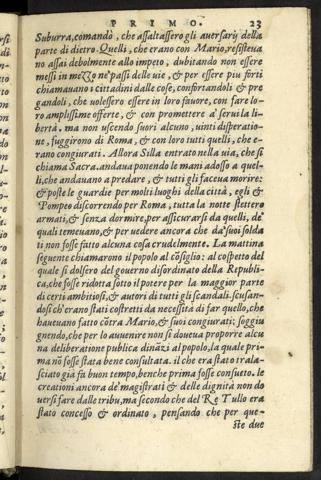 PRIMO. 23
Suburra, comandò, che assaltassero gli auersarij della
parte di dietro. Quelli, che erano con Mario, resisteua
no assai debolmente allo impeto, dubitando non essere
messi in mezzo ne' passi delle uie, & per essere piu forti
chiamauano i cittadini dalle case, confortandoli & pre
gandoli, che uolessero essere in loro fauore, con fare lo-
ro amplissime offerte, & con promettere a' serui la li-
bertà. ma non uscendo fuori alcuno, uinti disperatio-
ne, fuggirono di Roma, & con loro tutti quelli, che e-
rano congiurati. Allora Silla entrato nella uia, che si
chiama Sacra, andaua ponendo le mani adosso a quel-
li, che andauano a predare, & tutti gli faceua morire:
& poste le guardie per molti luoghi della città, egli &
Pompeo discorrendo per Roma, tutta la notte stettero
armati, & senza dormire, per assicurarsi da quelli, de'
quali temeuano, & per uedere ancora che da' suoi solda
ti non fosse fatto alcuna cosa crudelmente. La mattina
seguente chiamarono il popolo al cõsiglio: al cospetto del
quale si dolsero del gouerno disordinato della Republi-
ca, che fosse ridotta sotto il potere per la maggior parte
di certi ambitiosi, & autori di tutti gli scandali. scusan-
dosi ch'erano stati costretti da necessità di far quello, che
haueuano fatto cõtra Mario, & suoi congiurati: soggiu
gnendo, che per lo auuenire non si doueua proporre alcu
na deliberatione publica dinãzi al popolo, la quale pri
ma nõ fosse stata bene consultata. il che era stato trala-
sciato già fu buon tempo, benche prima fosse consueto. le
creationi ancora de' magistrati & delle dignità non do
uersi fare dalle tribu, ma secondo che del Re Tullo era
stato concesso & ordinato, pensando che per que-
ste due